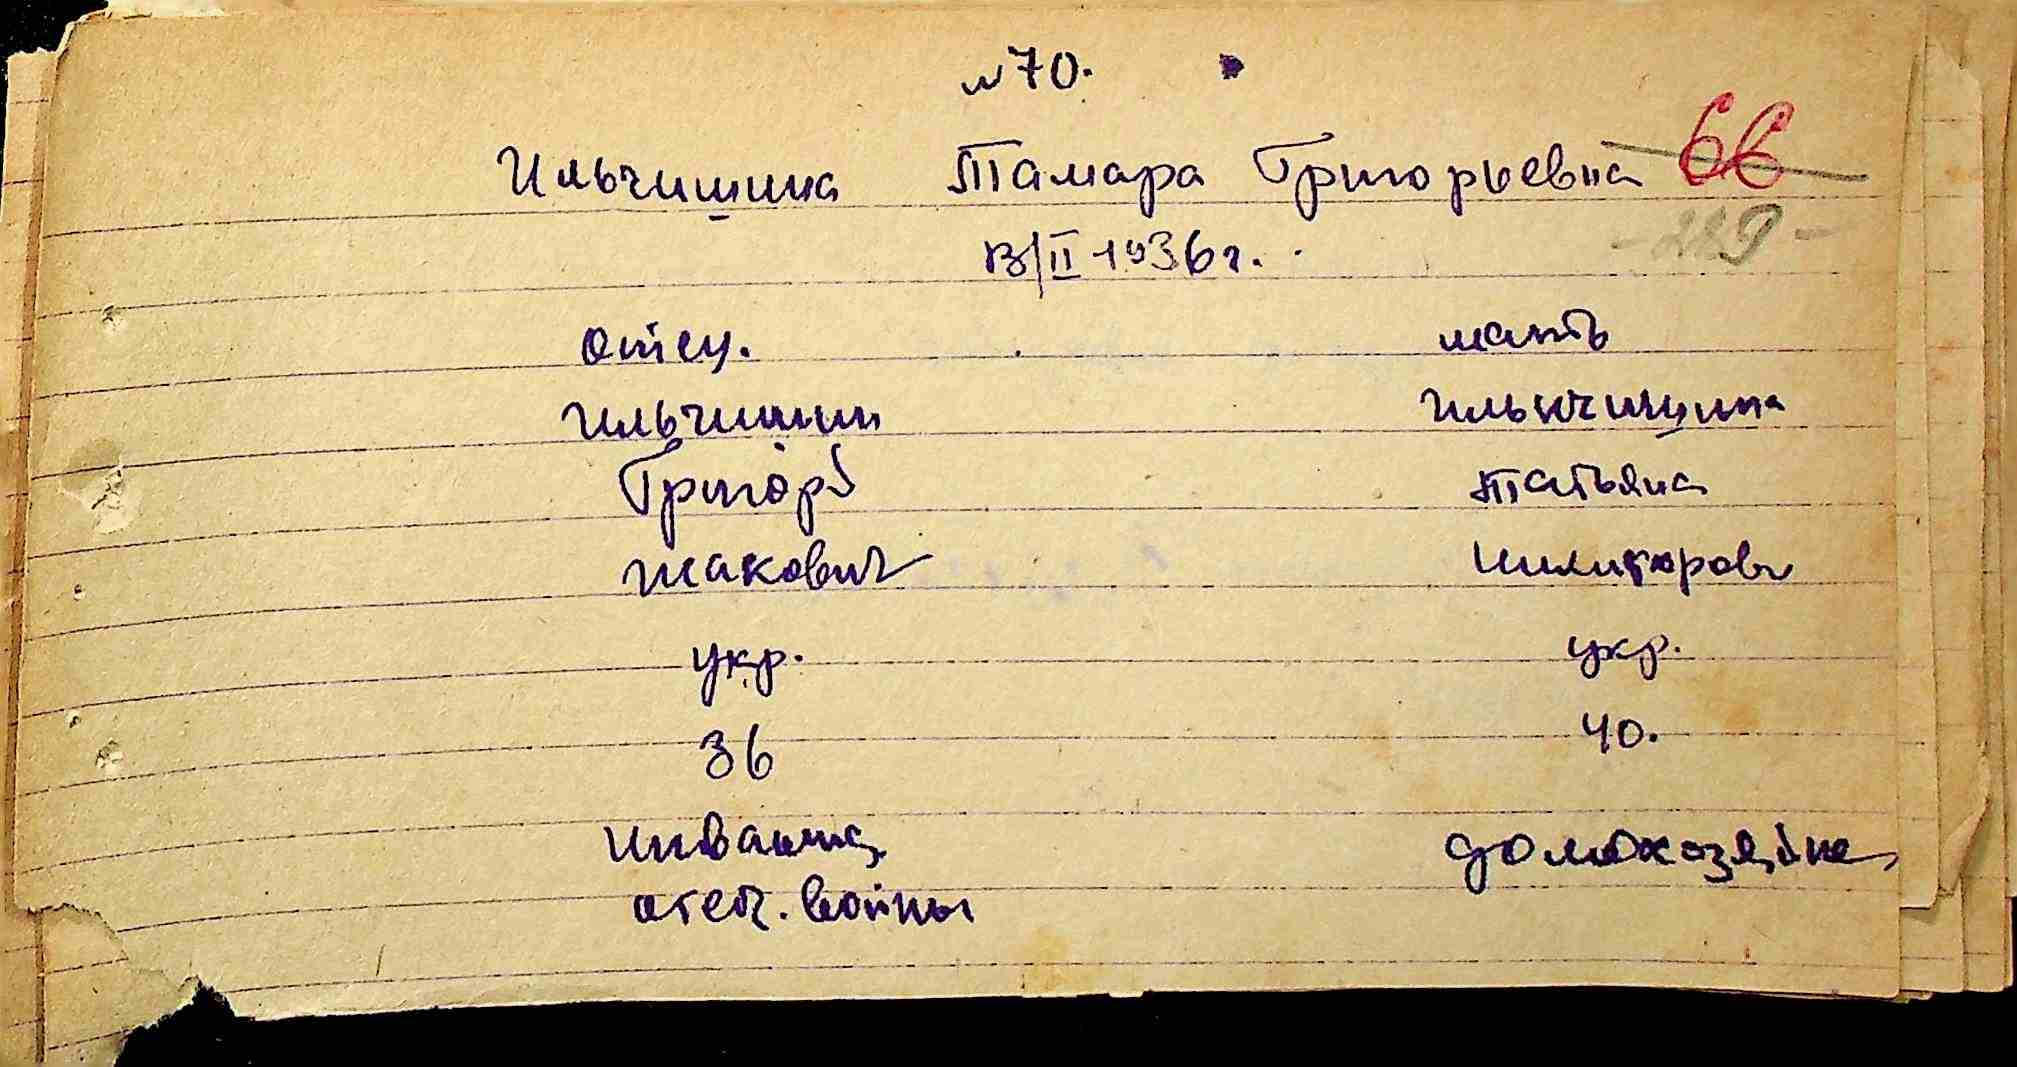 № 70.
Ильчишина Тамара Григорьевна 66
13/II 1936 г.
отец. мать
Ильчишин Ильчишина
Григор Татьяна
укр. укр.
36 40.
инвалид домохозяйка
отеч. войны